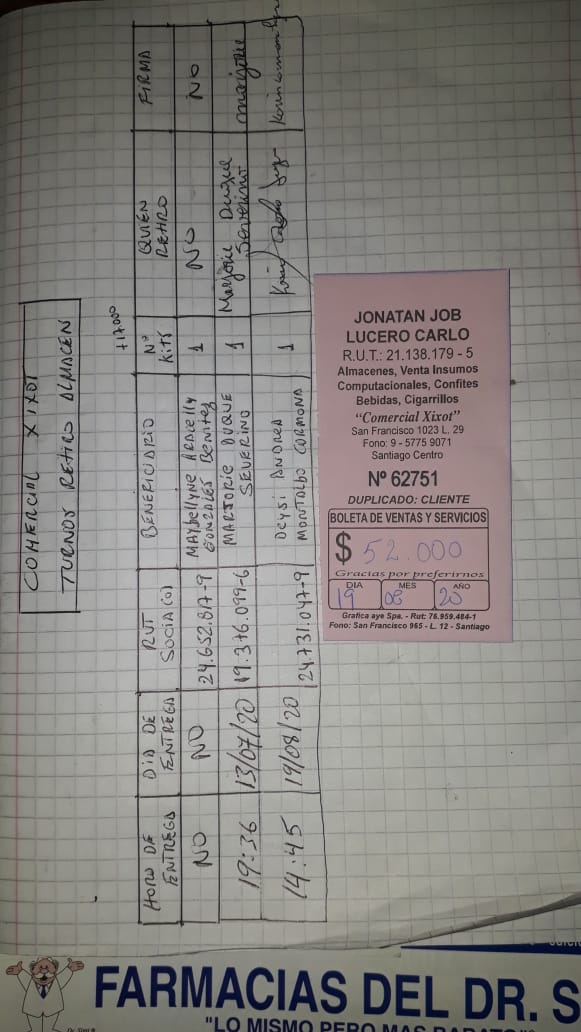 COMERCIAL XIXOT
TURNOS RETIRO ALMACEN
+17.000
HORA DE ENTREGA
DIA DE ENTREGA
RUT SOCIA(O)
BENEFICIARIO
N° kits
QUIÉN RETIRO
FIRMA
NO
NO
24.652.817-9
MAYbellyNE ARACELLY
GONZALES BENITEZ
1
NO
NO
19:36
13/07/20
19.376.099-6
MARJORIE DUQUE
SEVERINO
1
Marjorie Duque
Severino
marjorie
14:45
19/08/20
24.731.047-9
Deysi ANDREA
MONTALBO CARMONA
1
JONATAN JOB
LUCERO CARLO
R.U.T.: 21.138.179 - 5
Almacenes, Venta Insumos
Computacionales, Confites
Bebidas, Cigarrillos
“Comercial Xixot”
San Francisco 1023 L. 29
Fono: 9 - 5775 9071
Santiago Centro
Nº 62751
DUPLICADO: CLIENTE
BOLETA DE VENTAS Y SERVICIOS
$ 52.000
Gracias por preferirnos
DIA MES AÑO
19 08 20
Grafica aye Spa. - Rut: 76.959.484-1
Fono: San Francisco 965 - L. 12 - Santiago
FARMACIAS DEL DR. S
"LO MISMO PERO MAS BARATO"